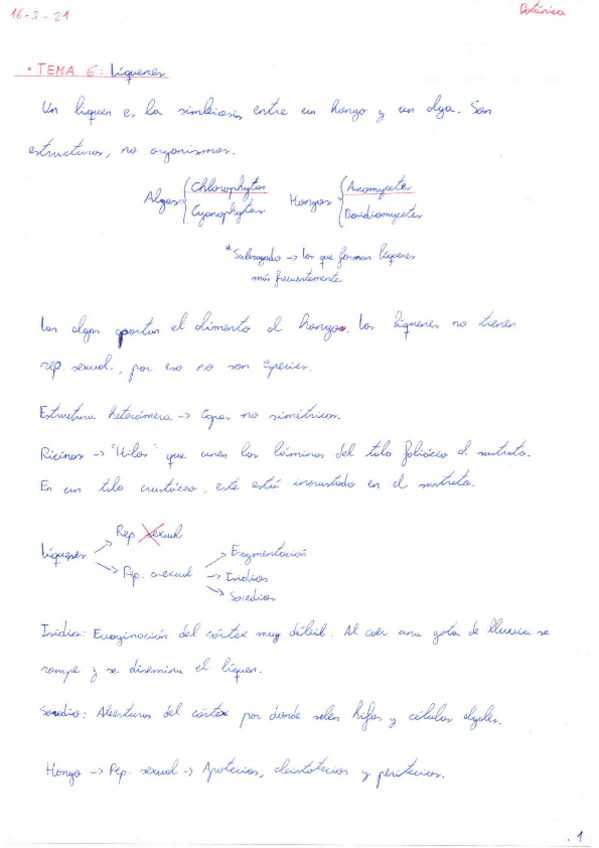 16-3-21
Botánica
• TEMA 6: Líquenes
Un liquen es la simbiosis entre un hongo y un alga. Son
estructuras, no organismos.
Algas { Chlorophytas Hongos { Ascomycetes
Cyanophytas Basidiomycetes
*Subrayado -> los que forman líquenes
más frecuentemente
Las algas aportan el alimento al hongo. Los líquenes no tienen
rep. sexual, por eso no son especies.
Estructura heterómera -> Capas no simétricas.
Ricinas -> "Hilos" que unen las láminas del talo foliáceo al sustrato.
En un talo crustáceo, este está incrustado en el sustrato.
Rep. sexual
Líquenes Fragmentación
Rep. asexual -> Isidios
Soredios
Isidio: Evaginación del córtex muy débil. Al caer una gota de lluvia se
rompe y se disemina el liquen.
Soredio: Aberturas del córtex por donde salen hifas y células algales.
Hongo -> Rep. sexual -> Apotecios, cleistotecios y peritecios.
. 1